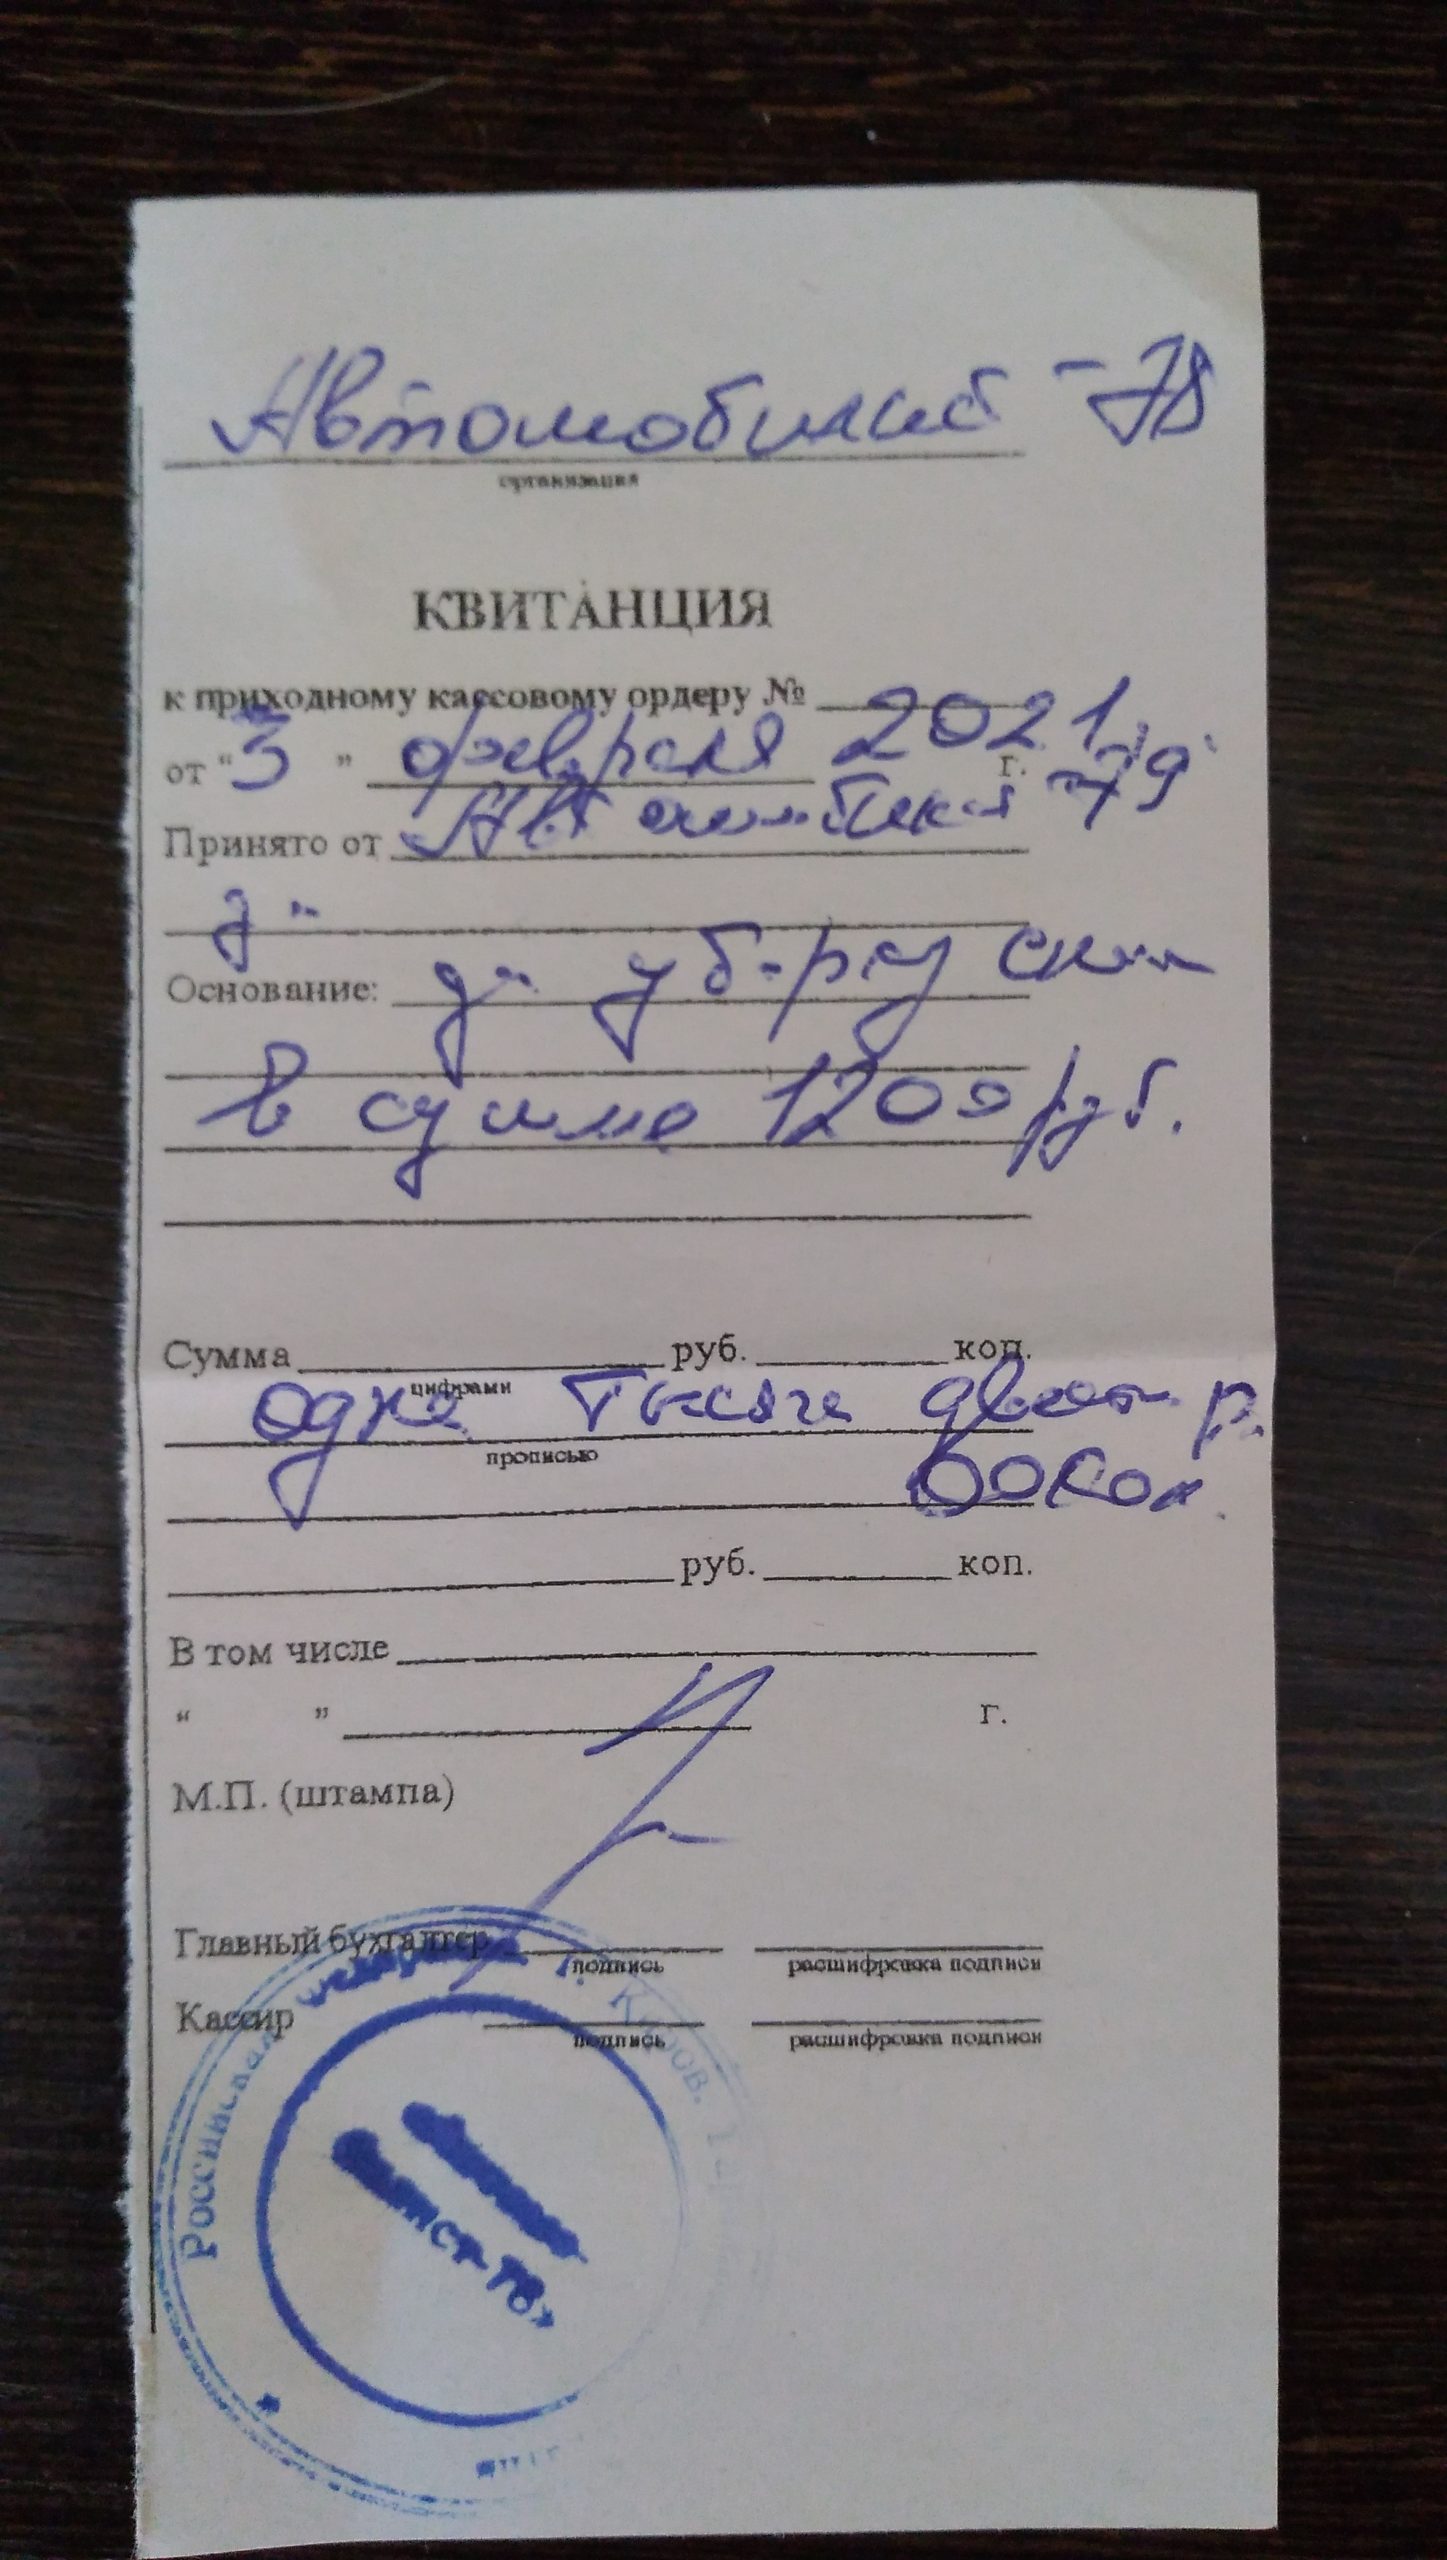 Автомобилист -78
организация
КВИТАНЦИЯ
к приходному кассовому ордеру №
от “3” февраля 2021 г.
Принято от
Основание: за уборку
в сумме 1200 руб.
Сумма руб. коп.
цифрами
одна тысяча двести р.
прописью
00 коп.
руб. коп.
В том числе
“ ” г.
М.П. (штампа)
Главный бухгалтер
подпись расшифровка подписи
Кассир
подпись расшифровка подписи
Российская г. Киров
-78»